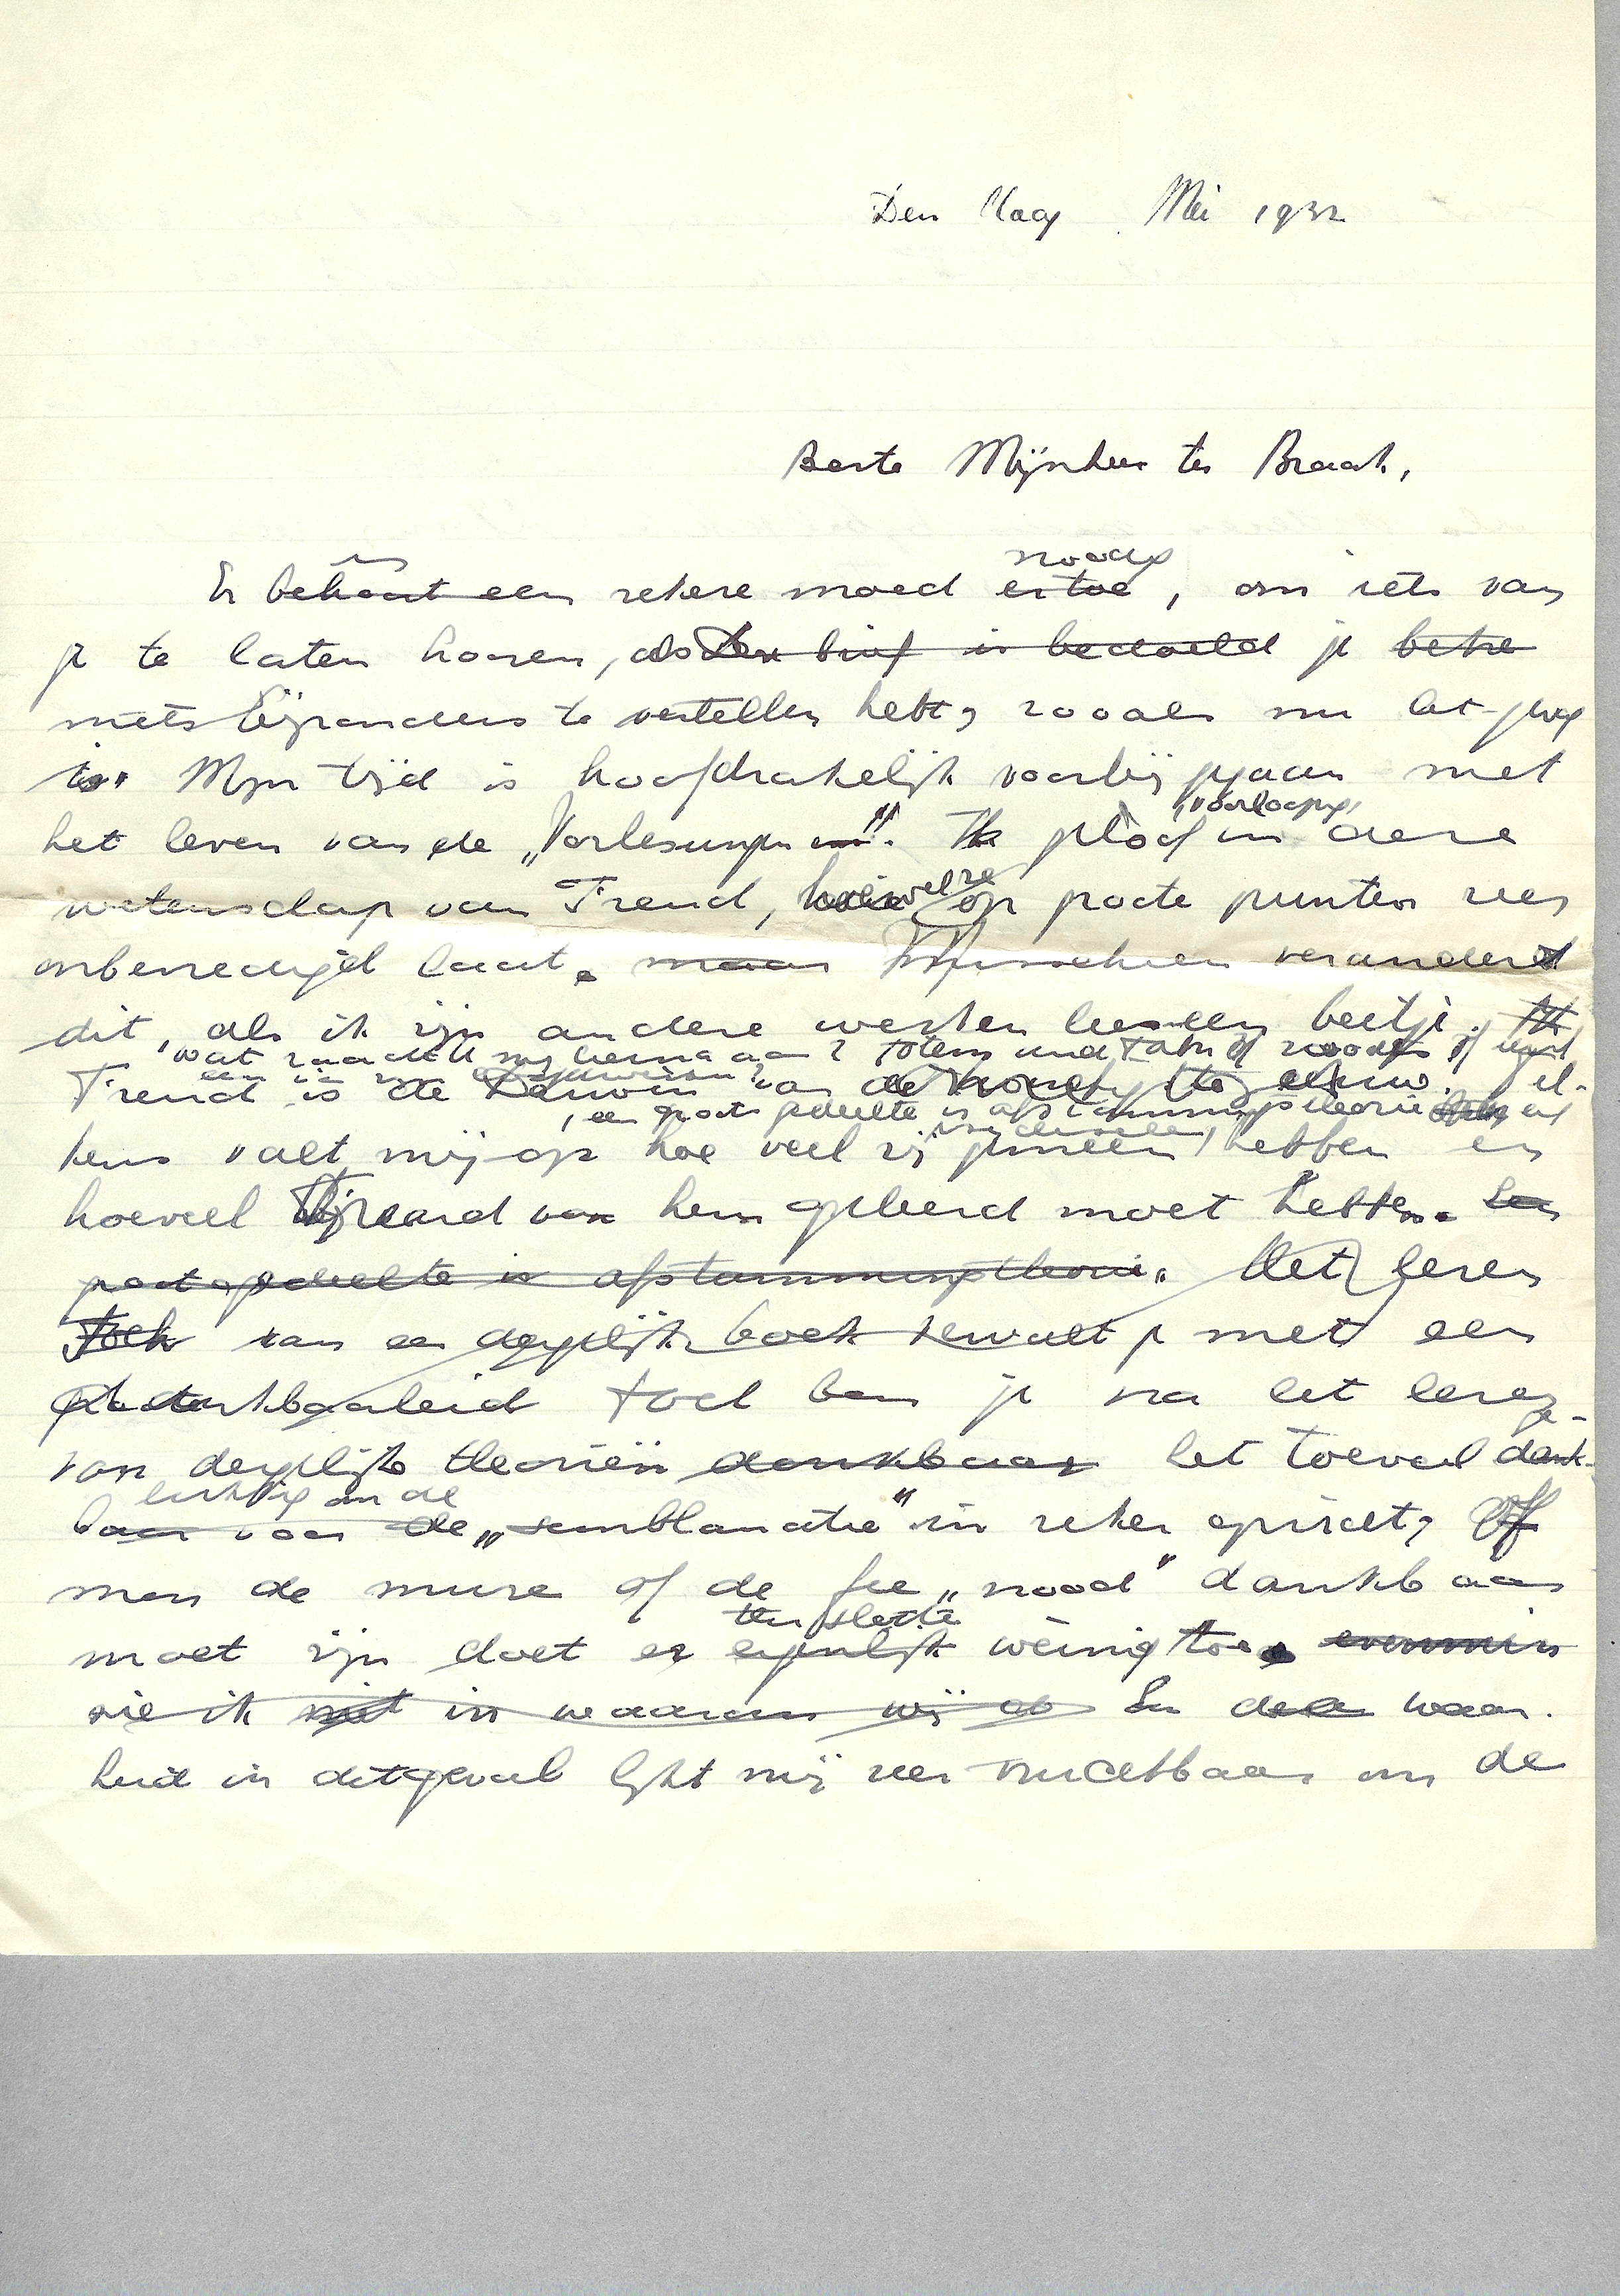 Den Haag Mei 1932
Beste Mijnheer ter Braak,
is noodig
Er behoort een zekere moed ertoe, om iets van
je te laten hooren, als Den brief is bedoeld je betre
niets bijzonders te vertellen hebt, zooals nu het geval
is. Mijn tijd is hoofdzakelijk voorbij gegaan met
voorloopig,
het lezen van de „Vorlesungen". Ik geloof in deze
wetenschap van Freud, hoewel ze op groote punten zeer
onbevredigd laat. maar Misschien veranderd
dit, als ik zijn andere werken lees een beetje. Ik
wat raadt U mij hierna aan? Totem und Tabu of
Freud is de Darwin van de eeuw. Tel-
, een groot gedeelte is afstammingstheorie
kens valt mij op hoe veel zij gemeen hebben en
hoeveel Freud van hem geleerd moet hebben. Een
groot gedeelte is afstammingstheorie. Het lezen
Toch van een dergelijk boek vervult je met een
dankbaarheid toch ben je na het lezen
ge-
van dergelijke theorieën dankbaar het toeval dank-
om de
baar voor de „semblanatie" in zeker opzicht, Of
men de muze of de fee „nood" dankbaar
ten slotte
moet zijn doet er eigenlijk weinig toe. evenmin
zie ik niet in waarom wij En deze waar-
heid in dit geval lijkt mij zeer vruchtbaar om de